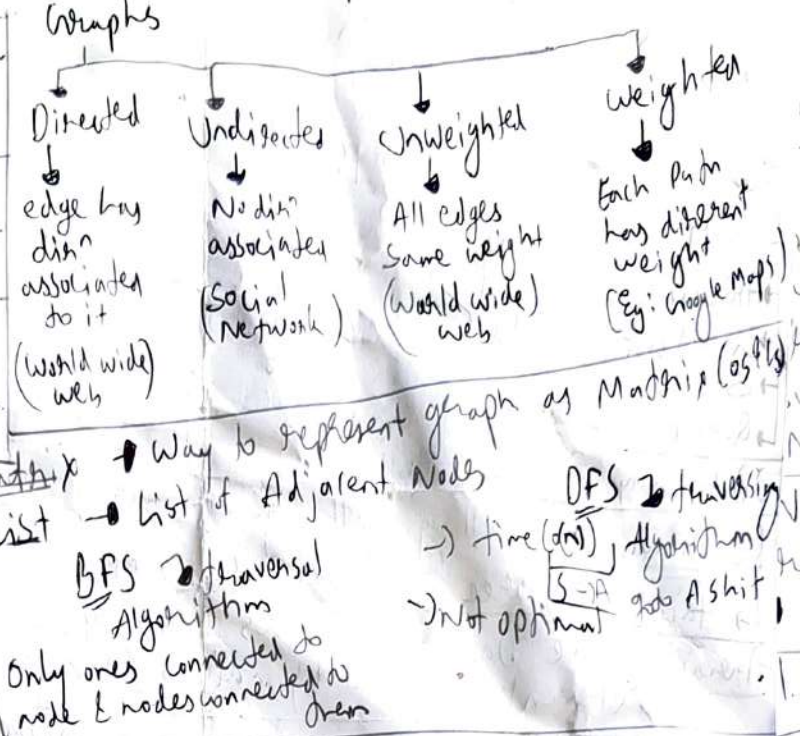 Graphs
Directed
edge has
dirⁿ
associated
to it
(World wide)
web
Undirected
No dirⁿ
associated
(Social
Network)
Unweighted
All edges
Same weight
(World wide)
web
Weighted
Each Path
has diferent
weight
(Eg: Google Maps)
Way to represent graph as Matrix
List of Adjacent Nodes
BFS → traversal
Algorithm
Only ones connected to
node & nodes connected to
them
DFS → traversing
Algorithm
→ time (O(n))
→ Not optimal